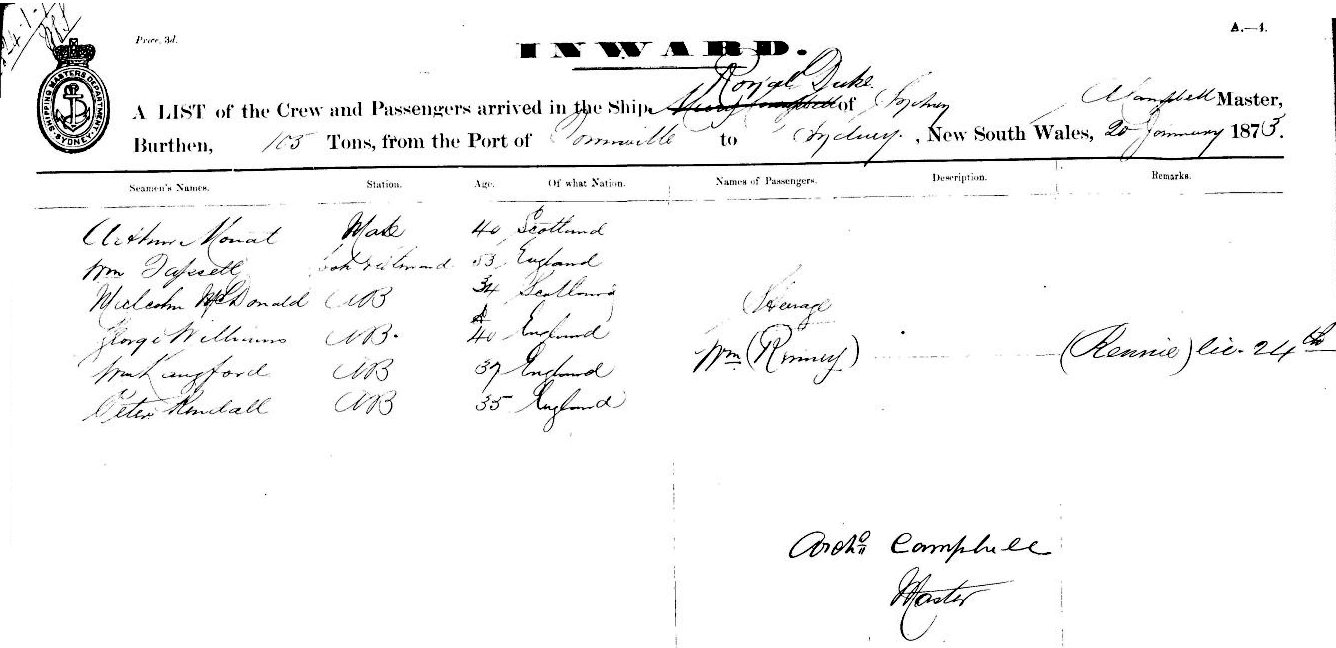 24.1.7
Price, 3d.
A.—4.
SHIPPING MASTERS DEPARTMENT SYDNEY
INWARD.
Royal Duke
A LIST of the Crew and Passengers arrived in the Ship of Sydney A Campbell Master,
Burthen, 105 Tons, from the Port of Townsville to Sydney. , New South Wales, 20 January 1873.
Seamen's Names. Station. Age. Of what Nation. Names of Passengers. Description. Remarks.
Arthur Monat Mate 40 Scotland
Wm Tapsell Cook & Steward 53 England
Malcolm McDonald AB 34 Scotland
Steerage
George Williams AB. 40 England
Wm (Rinney) (Rennie) lic. 24th
Wm Langford AB 37 England
Peter Kendall AB 35 England
Archd Campbell
Master